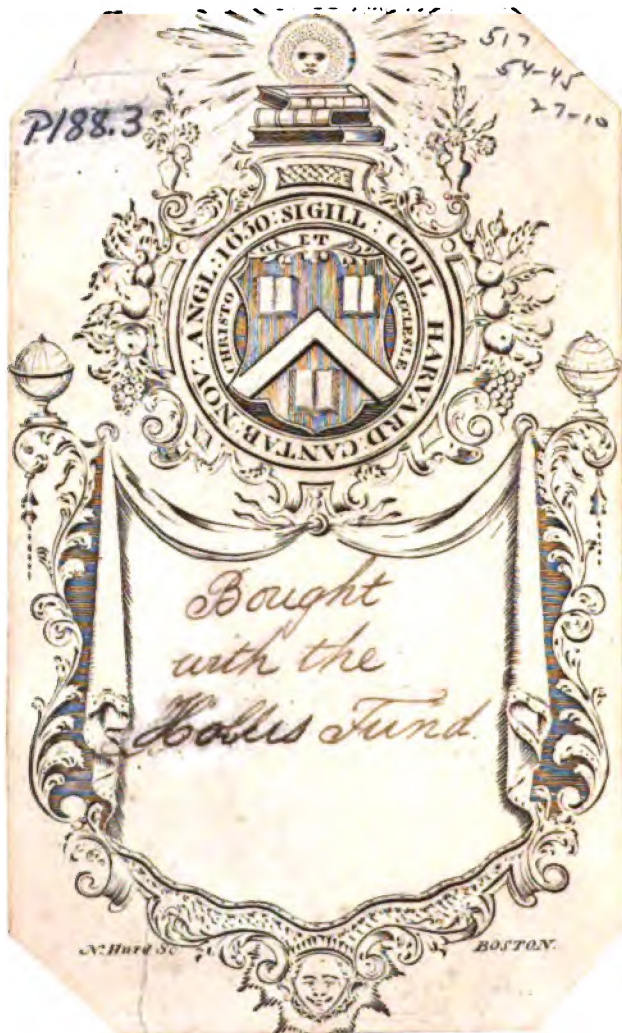 517
54-45
27-10
P188.3
SIGILL : COLL HARVARD: CANTAB: NOV: ANGL: 1650:
ET
CHRISTO
ECCLESIÆ
Bought
with the
Hollis Fund.
N. Hurd Sc
BOSTON.